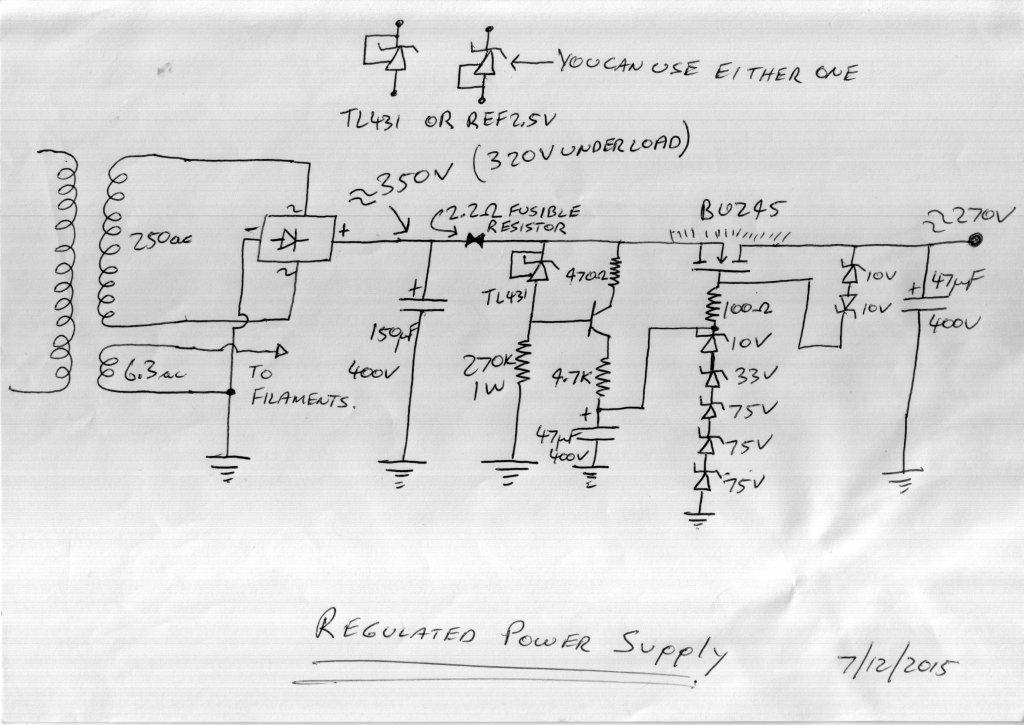 YOU CAN USE EITHER ONE
TL431 OR REF2.5V
≈350V (320V UNDERLOAD)
2.2Ω FUSIBLE
RESISTOR
BUZ45
≈270V
250ac
-
~
~
+
TL431
470Ω
10V
10V
+
47µF
400V
+
150µF
400V
100Ω
10V
6.3ac
TO
FILAMENTS.
270K
1W
4.7K
33V
75V
+
47µF
400V
75V
75V
REGULATED POWER Supply
7/12/2015